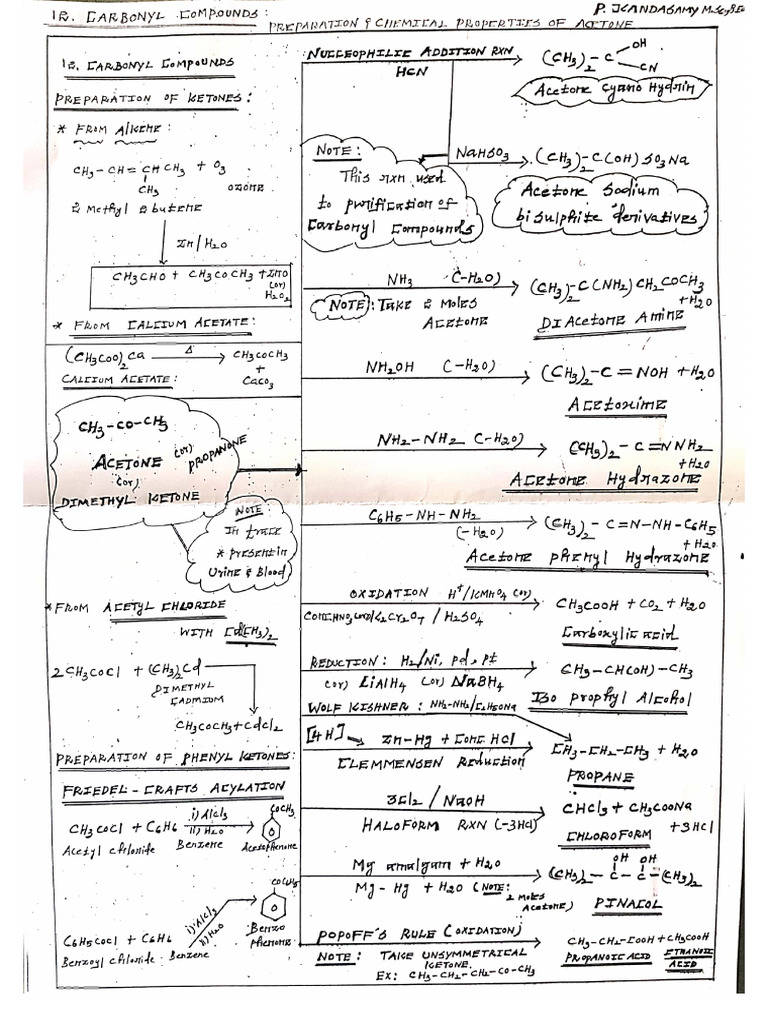 12. CARBONYL COMPOUNDS:
PREPARATION & CHEMICAL PROPERTIES OF ACETONE
P. KANDASAMY M.Sc., B.Ed
12. CARBONYL COMPOUNDS
PREPARATION OF KETONES:
* FROM ALKENE:
CH3-CH=CHCH3 + O3
CH3
OZONE
2 Methyl 2 butene
Zn/H2O
CH3CHO + CH3COCH3 + ZnO
(or)
H2O2
* FROM CALCIUM ACETATE:
(CH3COO)2Ca Δ CH3COCH3
+
CaCO3
CALCIUM ACETATE:
CH3-CO-CH3
ACETONE (or) PROPANONE
(or)
DIMETHYL KETONE
NOTE
In trace
* present in
Urine & Blood
* FROM ACETYL CHLORIDE
WITH Cd(CH3)2
2CH3COCl + (CH3)2Cd
DIMETHYL
CADMIUM
CH3COCH3 + CdCl2
PREPARATION OF PHENYL KETONES:
FRIEDEL-CRAFTS ACYLATION
CH3COCl + C6H6 i) AlCl3
ii) H2O
COCH3
Acetyl chloride Benzene Acetophenone
C6H5COCl + C6H6 i) AlCl3
ii) H2O
COC6H5
Benzo
phenone
Benzoyl chloride Benzene
NUCLEOPHILIC ADDITION RXN
HCN
(CH3)2-C OH
CN
Acetone Cyano Hydrin
NOTE:
This rxn used
to purification of
Carbonyl Compounds
NaHSO3 (CH3)2-C(OH)SO3Na
Acetone Sodium
bisulphite derivatives
NH3 (-H2O) (CH3)2-C(NH2)CH2COCH3
+H2O
NOTE: Take 2 moles
Acetone
DiAcetone Amine
NH2OH (-H2O) (CH3)2-C=NOH + H2O
Acetoxime
NH2-NH2 (-H2O) (CH3)2-C=NNH2
+H2O
Acetone Hydrazone
C6H5-NH-NH2
(-H2O)
(CH3)2-C=N-NH-C6H5
+H2O
Acetone phenyl Hydrazone
OXIDATION H+/KMnO4 (or)
Conc.HNO3 (or) K2Cr2O7/H2SO4
CH3COOH + CO2 + H2O
Carboxylic acid
REDUCTION: H2/Ni, Pd, Pt
(or) LiAlH4 (or) NaBH4
CH3-CH(OH)-CH3
Iso prophyl Alcohol
WOLF KISHNER: NH2-NH2/C2H5ONa
[4H] Zn-Hg + Conc HCl
CLEMMENSEN Reduction
CH3-CH2-CH3 + H2O
PROPANE
3Cl2/NaOH
HALOFORM RXN (-3HCl)
CHCl3 + CH3COONa
+3HCl
CHLOROFORM
Mg amalgam + H2O
Mg-Hg + H2O (NOTE:
2 moles
Acetone)
OH OH
(CH3)2-C-C-(CH3)2
PINACOL
POPOFF'S RULE (OXIDATION)
NOTE: TAKE UNSYMMETRICAL
KETONE.
EX: CH3-CH2-CH2-CO-CH3
CH3-CH2-COOH + CH3COOH
PROPANOIC ACID ETHANOIC
ACID